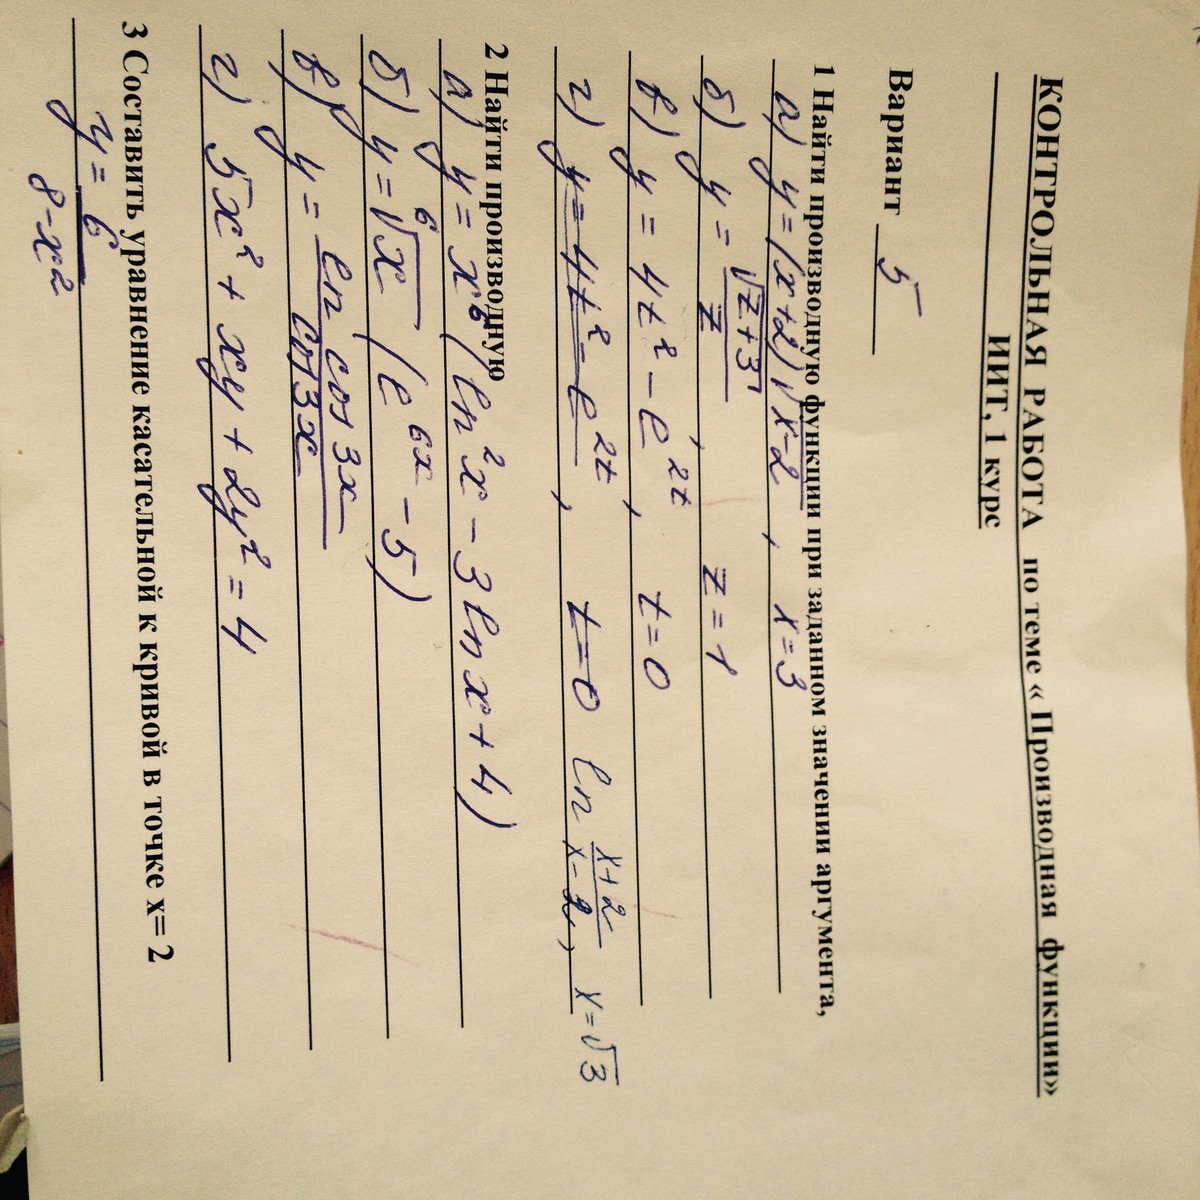 КОНТРОЛЬНАЯ РАБОТА по теме « Производная функции»
ИИТ, 1 курс
Вариант 5
1 Найти производную функции при заданном значении аргумента,
а) y=(x+2)√x-2 , x=3
б) y = √z+3 / z , z=1
в) y = 4t² - e^2t , t=0
г) y=4t²-e^2t , t=0 ln x+2 / x-2 , x=√3
2 Найти производную
а) y = x⁶ (ln²x - 3 ln x + 4)
б) y = ⁶√x (e^6x - 5)
в) y = ln cos 3x / cos 3x
г) 5x² + xy + 2y² = 4
3 Составить уравнение касательной к кривой в точке x= 2
y = 6 / 8-x²